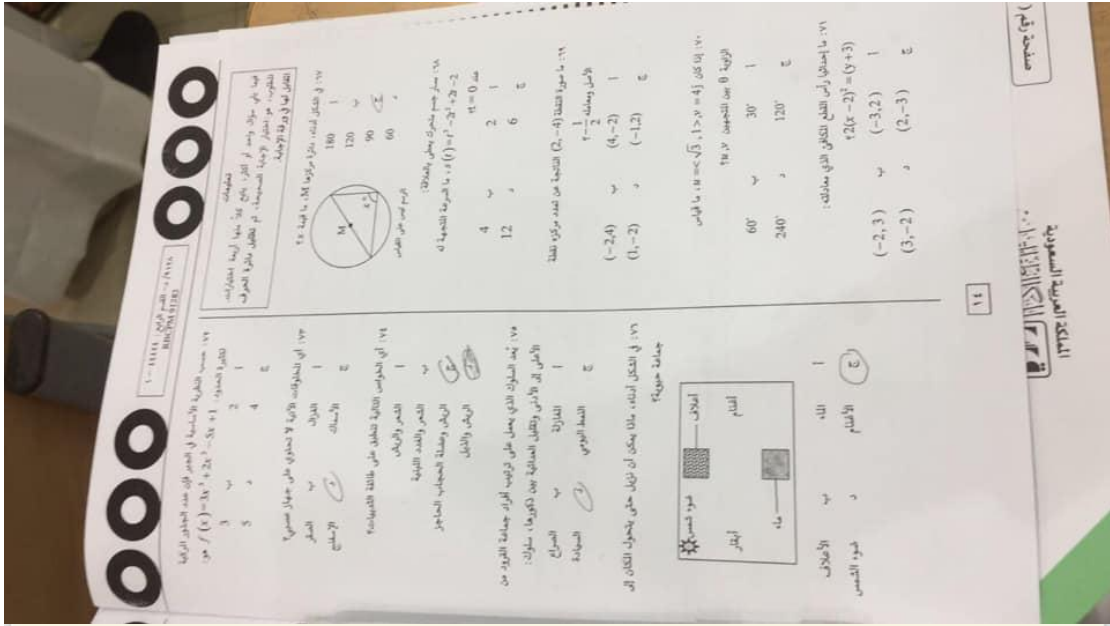 ١٠ - ٤٤٤٤٤ القسم الرابع
تعليمات
فيما يلي سؤال واحد أو أكثر، يتبع كلاً منها أربعة اختيارات.
المطلوب، هو اختيار الإجابة الصحيحة، ثم تظليل دائرة الحرف
المقابل لها في ورقة الإجابة.
٦٧: في الشكل أدناه، دائرة مركزها M، ما قيمة x؟
أ 180
ب 120
ج 90
د 60
M
x°
الرسم ليس على القياس
٦٨: مسار جسم متحرك يعطى بالعلاقة:
ما السرعة المتجهة له
عند t = 0؟
أ 2 ب 4
ج 6 د 12
٦٩: ما صورة النقطة (2, −4) الناتجة عن تمدد مركزه نقطة
الأصل ومعامله 1/2 −؟
أ (4,−2) ب (−2,4)
ج (−1,2) د (1,−2)
٧٠: إذا كان u = <√3, 1>, v = 4j، ما قياس
الزاوية θ بين المتجهين u, v؟
أ 30° ب 60°
ج 120° د 240°
٧١: ما إحداثيا رأس القطع المكافئ الذي معادلته:
2(x − 2)² = (y + 3)؟
أ (−3, 2) ب (−2, 3)
ج (2, −3) د (3, −2)
٧٢: حسب النظرية الأساسية في الجبر فإن عدد الجذور المركبة
لكثيرة الحدود: هو:
أ 2 ب 3
ج 4 د 5
٧٣: أي المخلوقات الآتية لا تحتوي على جهاز عصبي؟
أ الغزال ب الصقر
ج الأسماك د الإسفنج
٧٤: أي الخواص التالية تنطبق على طائفة الثدييات؟
أ الشعر والريش
ب الشعر والغدد اللبنية
ج الريش وعضلة الحجاب الحاجز
د الريش والذيل
٧٥: يُعد السلوك الذي يعمل على ترتيب أفراد جماعة القرود من
الأعلى إلى الأدنى وتقليل العدائية بين ذكورها، سلوك:
أ المغازلة ب الصراع
ج النمط اليومي د السيادة
٧٦: في الشكل أدناه، ماذا يمكن أن نزيل حتى يتحول المكان إلى
جماعة حيوية؟
ضوء شمس
أعلاف
أبقار
أغنام
ماء
أ الماء ب الأعلاف
ج الأغنام د ضوء الشمس
١٤
المملكة العربية السعودية
صفحة رقم (